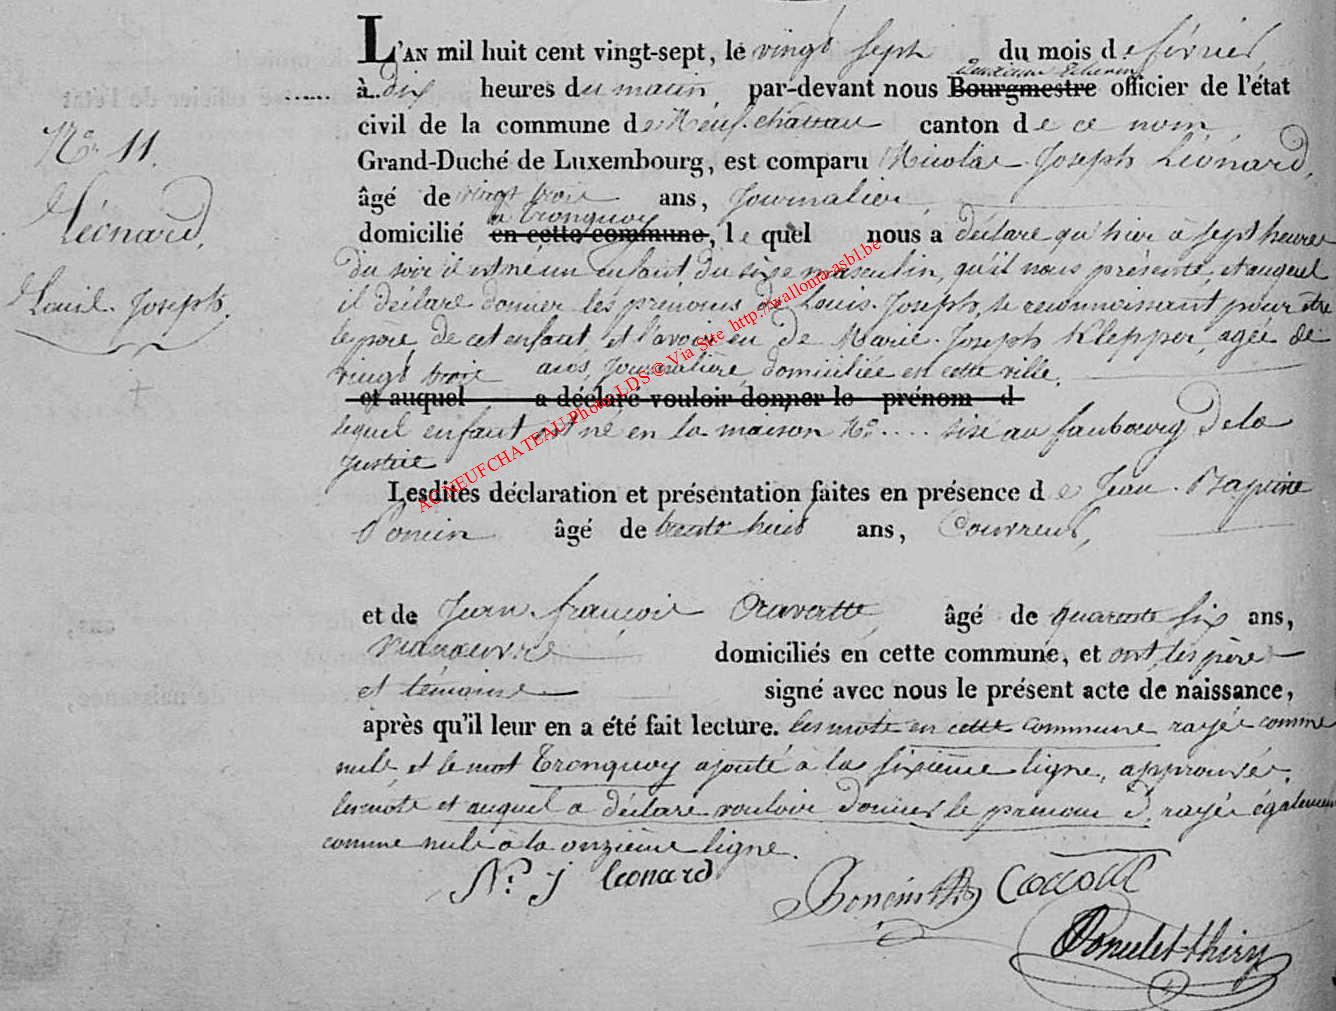 L'AN mil huit cent vingt-sept, le vingt sept du mois de février
deuxième Echevin
à dix heures du matin, par-devant nous Bourgmestre officier de l'état
civil de la commune de Neufchateau canton de ce nom,
Nº 11.
Grand-Duché de Luxembourg, est comparu Nicolas Joseph Léonard,
âgé de vingt trois ans, Journalier,
à Tronquoy
Léonard,
domicilié en cette commune, le quel nous a déclaré qu'hier à sept heures
du soir il est né un enfant du sexe masculin, qu'il nous présente, et auquel
Louis Joseph.
il déclare donner les prénoms de Louis Joseph, se reconnoissant pour être
le père de cet enfant et l'avoir eu de Marie Joseph Klepper, agée de
vingt trois ans, Journalière, domiciliée en cette ville.
et auquel a déclaré vouloir donner le prénom d
lequel enfant est né en la maison Nº .... sise au faubourg de la
Justice
Lesdites déclaration et présentation faites en présence de Jean Baptiste
Poncin âgé de trente huit ans, Couvreur,
et de Jean François âgé de quarante six ans,
manoeuvre domiciliés en cette commune, et ont, les père
et témoins signé avec nous le présent acte de naissance,
après qu'il leur en a été fait lecture. les mots en cette commune rayés comme
nuls, et le mot Tronquoy ajouté à la sixième ligne, approuvés.
les mots et auquel a déclaré vouloir donner le prénom d, rayés également
comme nuls à la onzième ligne.
N. j leonard
AC NEUFCHATEAU Photo LDS © Via Site http://wallonia-asbl.be